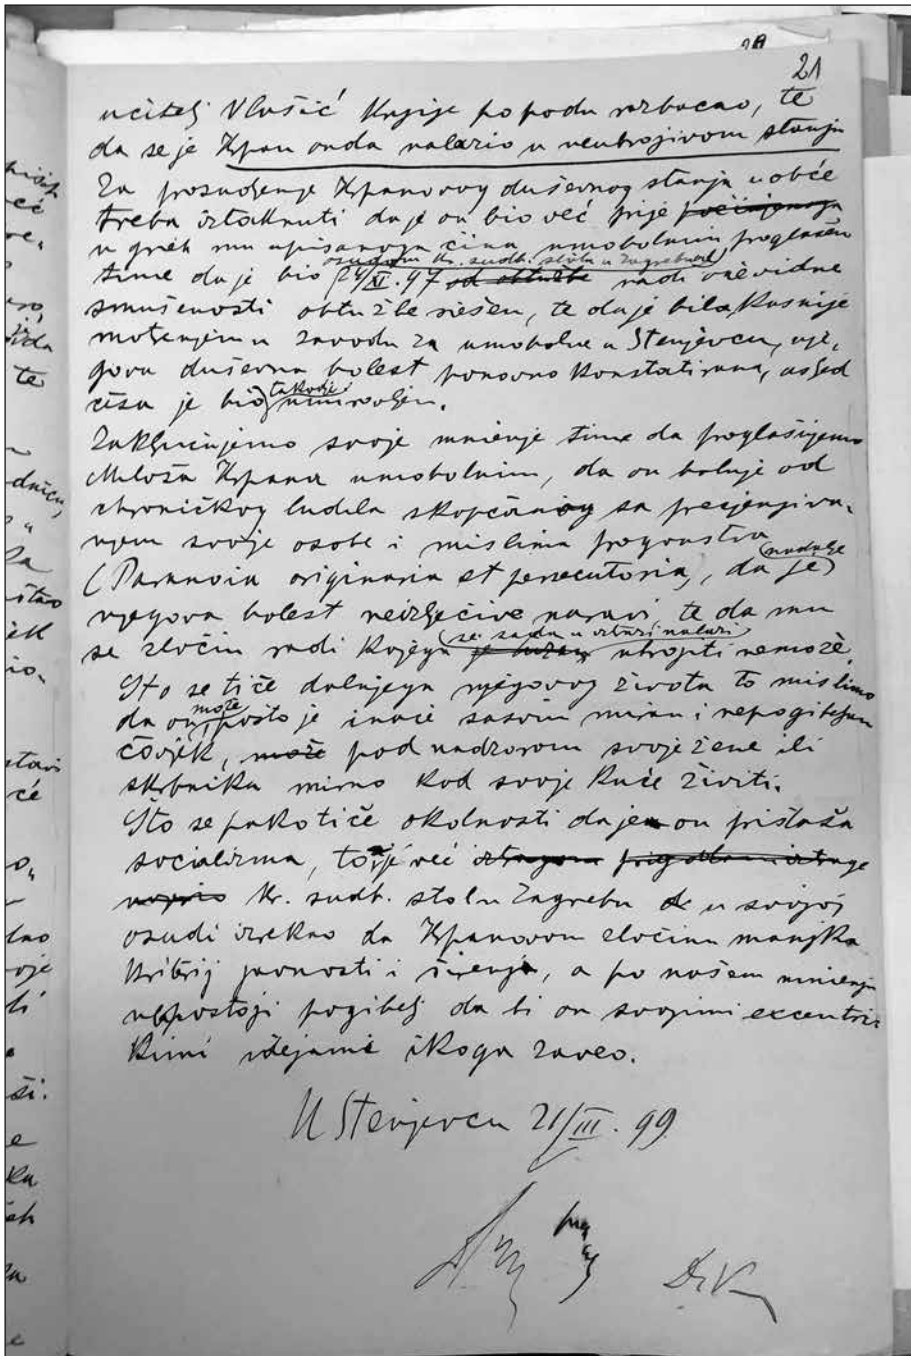 21
učitelj Vlašić knjige po podu razbacao, te
da se je Krpan onda nalazio u neubrojivom stanju
Za prosudjenje Krpanovog duševnog stanja uobće
treba iztaknuti da je on bio već prije počinjenoga
u grieh mu upisanoga čina umobolnim proglašen
osudom kr. sudb. stola u Zagrebu od
time da je bio 24/XI. 97 od obtužbe radi očevidne
smušenosti obtužbe riešen, te da je bila kasnije
motrenjem u zavodu za umobolne u Stenjevcu, nje,
gova duševna bolest ponovno konstatirana, usljed
takodjer
česa je bio umirovljen.
Zaključujemo svoje mnienje time da proglašujemo
Miloša Krpana umobolnim, da on boluje od
chroničkog ludila skopčanog sa precjenjiva,
njem svoje osobe i mislima progonstva
(Paranoia originaria et persecutoria), da je nadalje
njegova bolest neizlječive naravi, te da mu
se zločin radi kojega se sada u iztrazi nalazi ubrojiti nemože.
Što se tiče daljnjega njegovog života to mislimo
da on može, pošto je inače sasvim miran i nepogibeljan
čovjek, može pod nadzorom svoje žene ili
skrbnika mirno kod svoje kuće živiti.
Što se pako tiče okolnosti da je on pristaša
socializma, to je već iztragom prigodom iztrage
kr. sudb. stol u Zagrebu u svojoj
osudi izrekao da Krpanovom zločinu manjka
kriterij javnosti i širenja, a po našem mnienju
nepostoji pogibelj da bi on svojimi excentri,
kimi idejami ikoga zaveo.
U Stenjevcu 21/III. 99